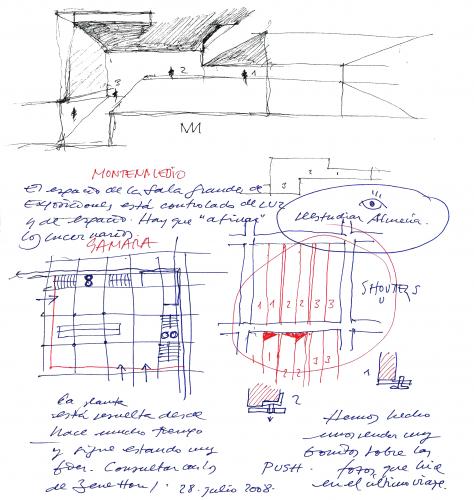 3 2 1
MONTENMEDIO
El espacio de la Sala grande de
Exposiciones está controlado de LUZ
y de espacio. Hay que "afinar"
los lucernarios.
3
Reestudiar Almería.
SAMARA
8
1 1 2 2 3 3
SHOUTERS
1 2 2 3 3
1
2
PUSH.
La planta
está resuelta desde
hace mucho tiempo
y sigue estando muy
bien. Consultar
de Benetton
28. julio 2008.
Hemos hecho
muy
bonitos sobre las
fotos que hice
en el último viaje.